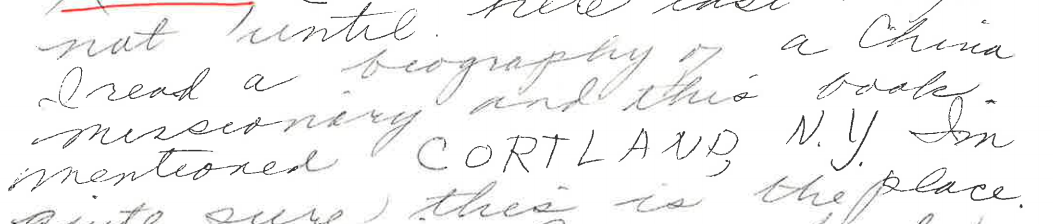 here last
not until.
I read a biography of a China
missionary and this book
mentioned CORTLAND, N.Y. Im
quite sure this is the place.